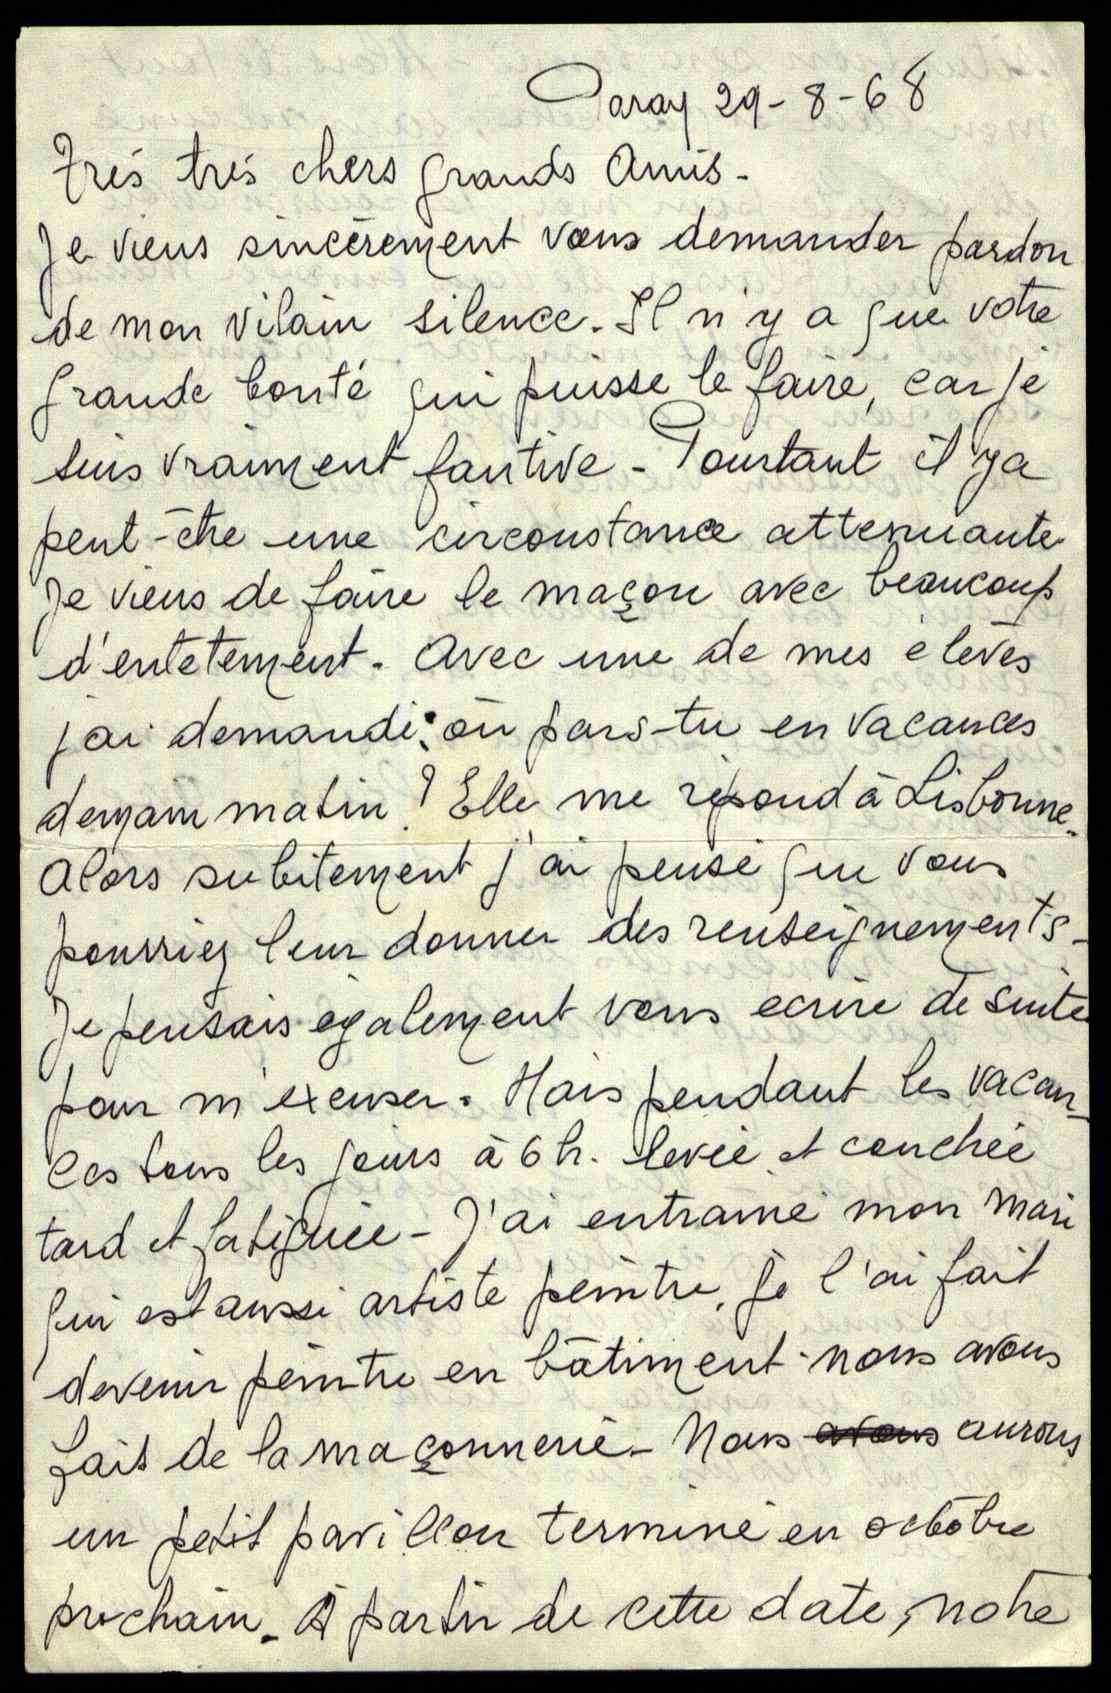 Paray 29-8-68
Très très chers grands Amis.
Je viens sincèrement vous demander pardon
de mon vilain silence. Il n'y a que votre
grande bonté qui puisse le faire, car je
suis vraiment fautive - Pourtant il y a
peut-être une circonstance attenuante
Je viens de faire le maçon avec beaucoup
d'entetement. Avec une de mes élèves
j'ai demandé: où pars-tu en vacances
demain matin? Elle me répond à Lisbonne.
Alors subitement j'ai pensé que vous
pourriez leur donner des renseignements -
Je pensais également vous ecrire de suite
pour m'excuser. Mais pendant les vacan-
ces tous les jours à 6 h. levée et couchée
tard et fatiguée - J'ai entrainé mon mari
qui est aussi artiste peintre, je l'ai fait
devenir peintre en bâtiment. nous avons
fait de la maçonnerie - Nous avons aurons
un petit pavillon terminé en octobre
prochain. A partir de cette date, notre